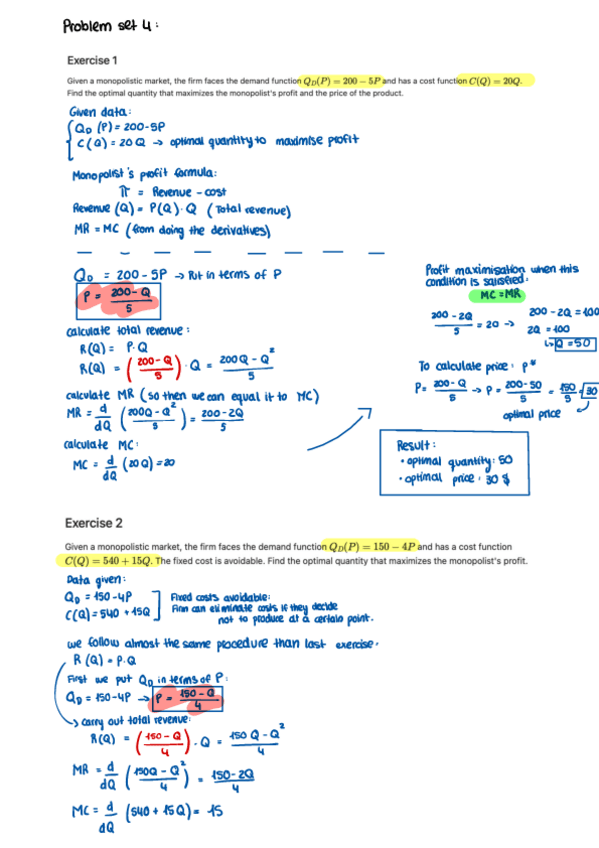 Problem set 4:
Exercise 1
Given a monopolistic market, the firm faces the demand function Q_D(P) = 200 − 5P and has a cost function C(Q) = 20Q.
Find the optimal quantity that maximizes the monopolist's profit and the price of the product.
Given data:
{ Q_D (P) = 200-5P
C(Q) = 20Q → optimal quantity to maximise profit
Monopolist's profit formula:
π = Revenue - cost
Revenue (Q) = P(Q)·Q (Total revenue)
MR = MC (from doing the derivatives)
Q_D = 200-5P → Put in terms of P
P = (200-Q)/5
calculate total revenue:
R(Q) = P·Q
R(Q) = ((200-Q)/5)·Q = (200Q-Q²)/5
calculate MR (so then we can equal it to MC)
MR = d/dQ ((200Q-Q²)/5) = (200-2Q)/5
calculate MC:
MC = d/dQ (20Q) = 20
Profit maximisation when this
condition is satisfied:
MC = MR
(200-2Q)/5 = 20 → 200-2Q = 100
2Q = 100
↳ Q = 50
To calculate price: P*
P = (200-Q)/5 → P = (200-50)/5 = 150/5 = 30
optimal price
Result:
• optimal quantity: 50
• optimal price: 30 $
Exercise 2
Given a monopolistic market, the firm faces the demand function Q_D(P) = 150 − 4P and has a cost function
C(Q) = 540 + 15Q. The fixed cost is avoidable. Find the optimal quantity that maximizes the monopolist's profit.
Data given:
Q_D = 150-4P
C(Q) = 540 + 15Q
Fixed costs avoidable:
Firm can eliminate costs if they decide
not to produce at a certain point.
we follow almost the same procedure than last exercise.
R(Q) = P·Q
First we put Q_D in terms of P:
Q_D = 150-4P → P = (150-Q)/4
→ carry out total revenue:
R(Q) = ((150-Q)/4)·Q = (150Q-Q²)/4
MR = d/dQ ((150Q-Q²)/4) = (150-2Q)/4
MC = d/dQ (540 + 15Q) = 15